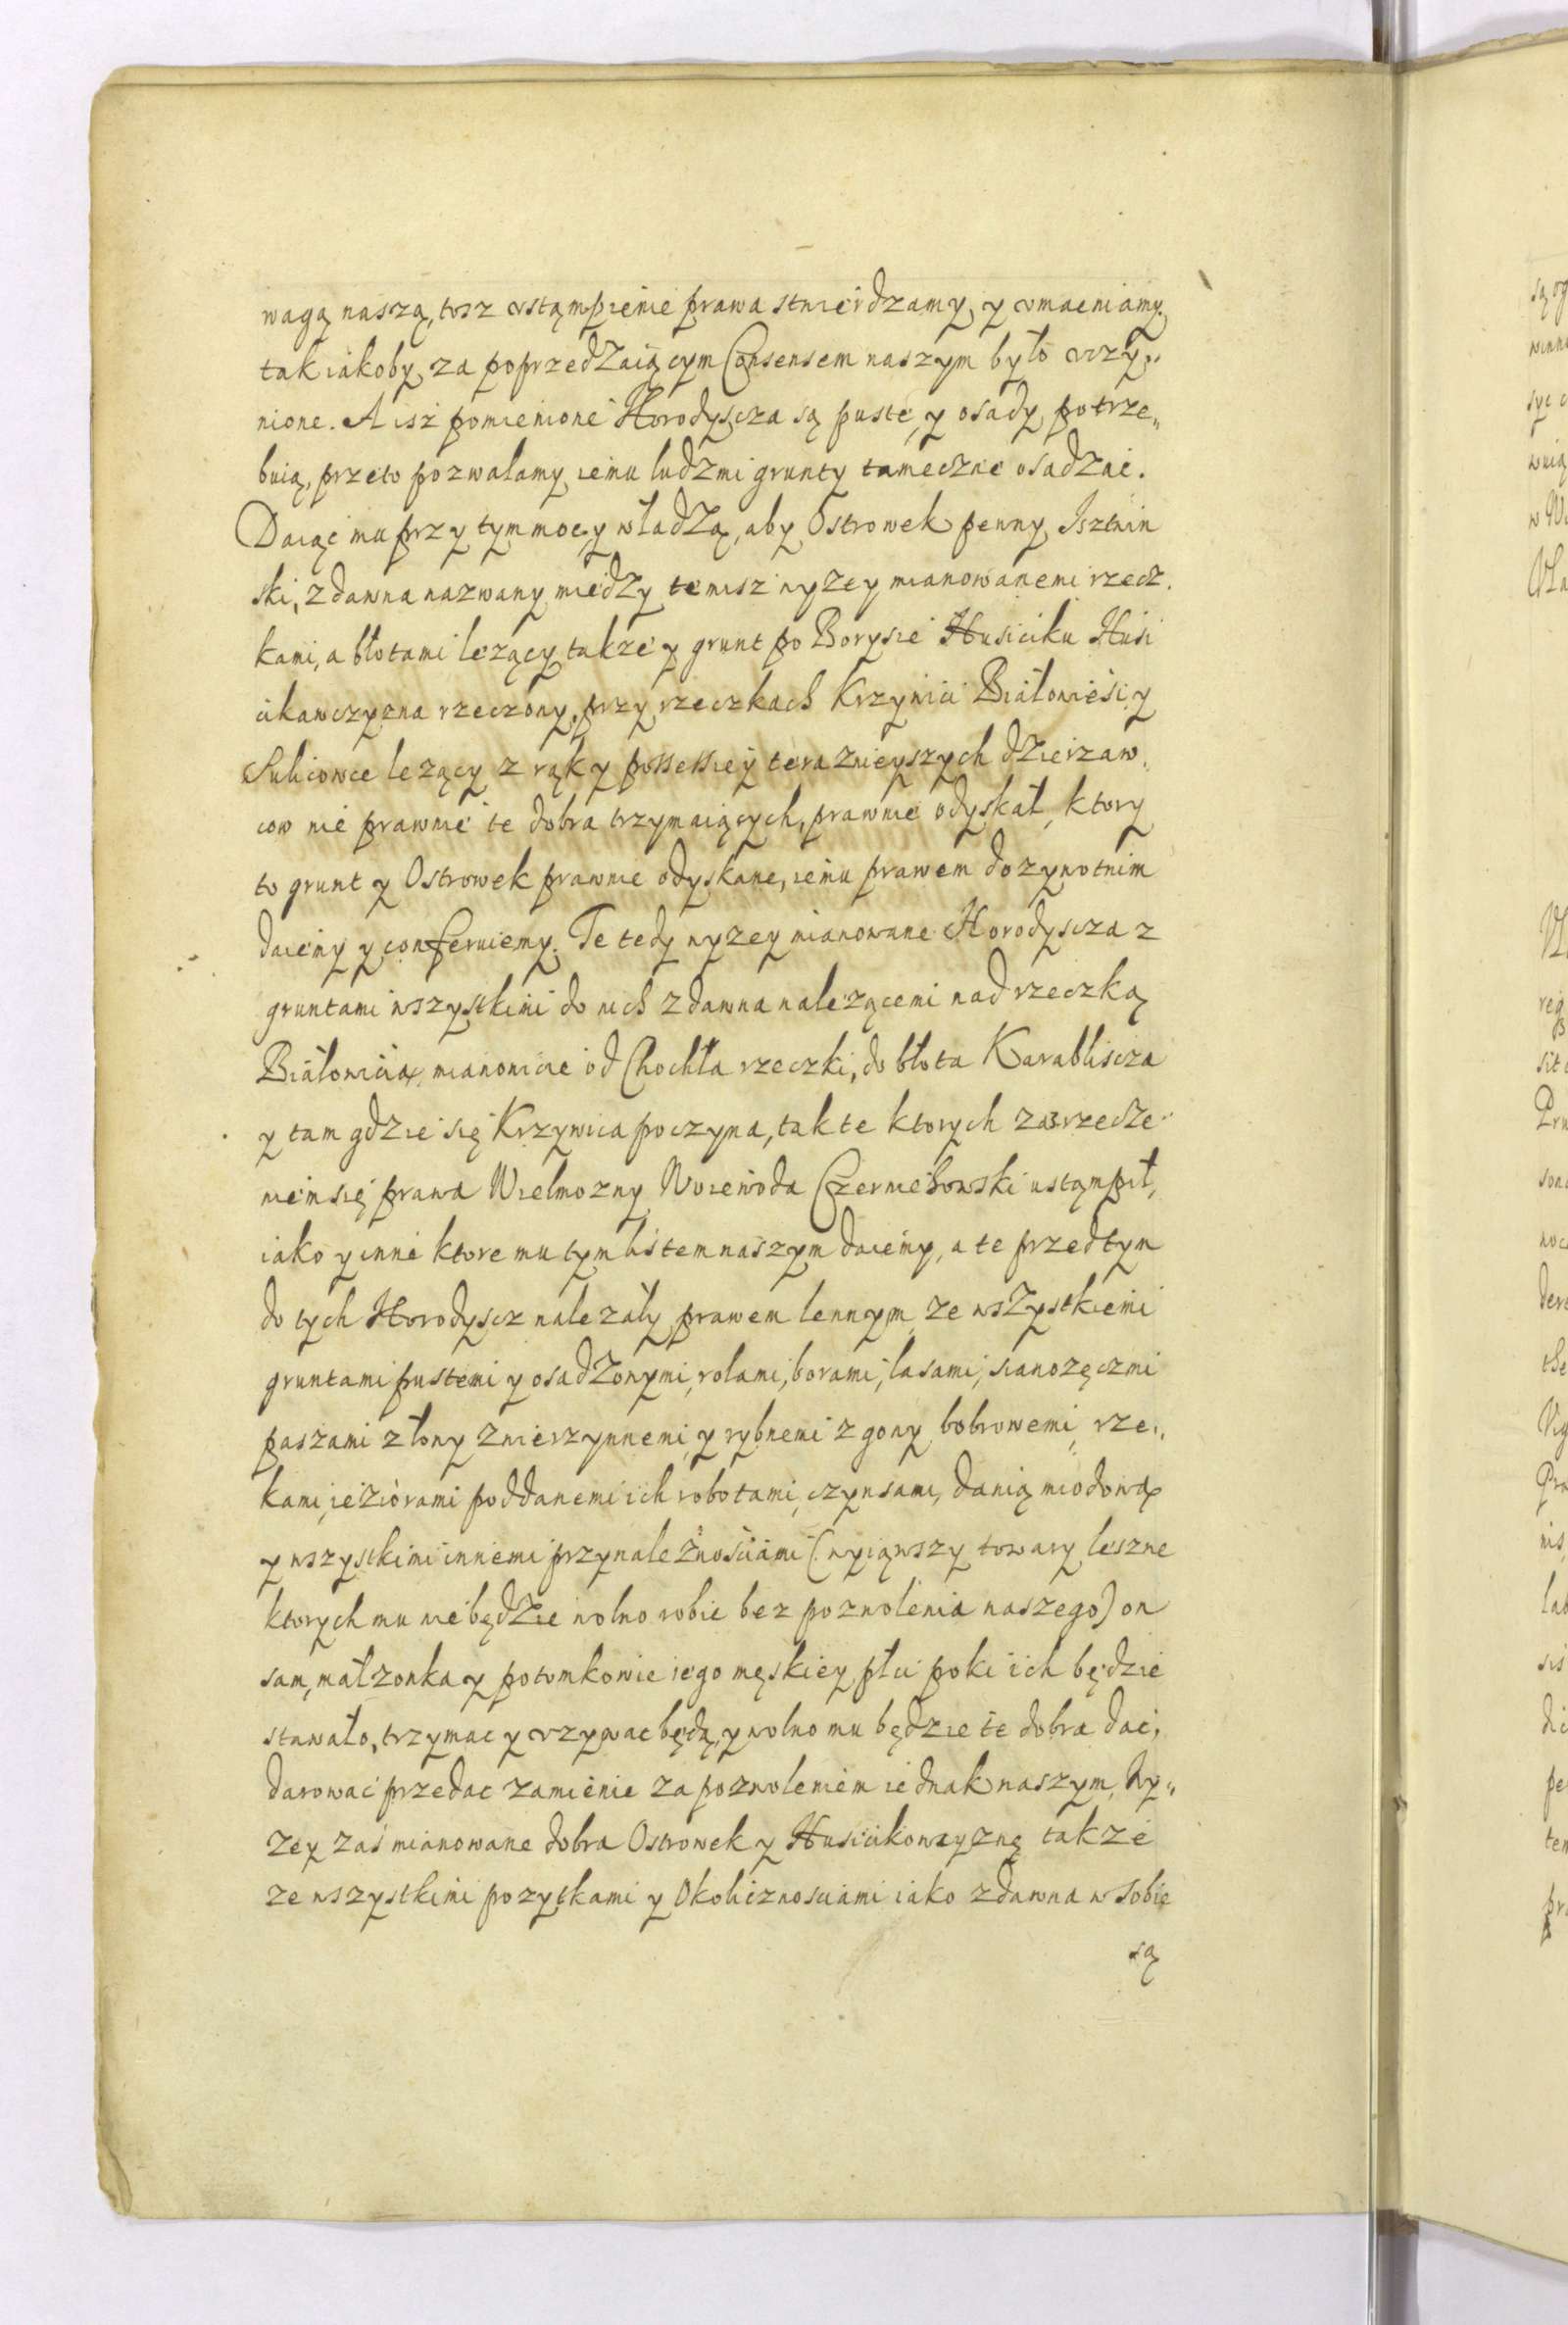 wagą naszą, tosz vstąmpienie prawa stwierdzamy, y vmacniamy
tak iakoby za poprzedzaiącym Consensem naszym było vczy„
nione. A isz pomienione Horodyscza są puste, y osady potrze„
buią, przeto pozwalamy iemu ludzmi grunty tameczne osadzac.
Daiąc mu przy tym moc y władzą, aby Ostrowek pewny Isztwin
ski, zdawna nazwany miedzy temisz wyzey mianowanemi rzecz„
kami, a błotami lezący, takze y grunt po Borysie Husiciku Husi
cikawczyzna rzeczony, przy rzeczkach Krzywici Białowiesi, y
Sulicowce lezący z rąk y possessiey teraznieyszych dzierzaw„
cow nie prawnie te dobra trzymaiących, prawnie odyskał, ktory
to grunt y Ostrowek prawnie odyskane, iemu prawem dozywotnim
daiemy y conferuiemy. Te tedy wyzey mianowane Horodyscza z
gruntami wszystkimi do nich zdawna nalezącemi nad rzeczką
Białowicią, mianowicie od Chochła rzeczki, do błota Karabliscza
y tam gdzie się Krzywica poczyna, tak te ktorych za wrzecze„
niem się prawa Wielmozny Woiewoda Czerniehowski ustąmpił,
iako y inne ktore mu tym listem naszym daiemy, a te przed tym
do tych Horodyscz nalezały prawem lennym, ze wszystkiemi
gruntami pustemi y osadzonymi, rolami, borami, lasami, sianozęczmi
paszami z łowy zwierzynnemi, y rybnemi z gony bobrowemi, rze„
kami, ieziorami poddanemi ich robotami, czynsami, danią miodową
y wszystkimi innemi przynaleznosciami (wyiąwszy towary leszne
ktorych mu nie będzie wolno robic bez pozwolenia naszego) on
sam, małzonka y potomkowie iego męskiey płci poki ich będzie
stawało, trzymac y vzywac będą, y wolno mu będzie te dobra dac,
darowac przedac zamienic za pozwoleniem iednak naszym, Wy„
zey zas mianowane dobra Ostrowek y Husicikowczyznę takze
ze wszystkimi pozytkami y okolicznosciami iako zdawna w sobie
są